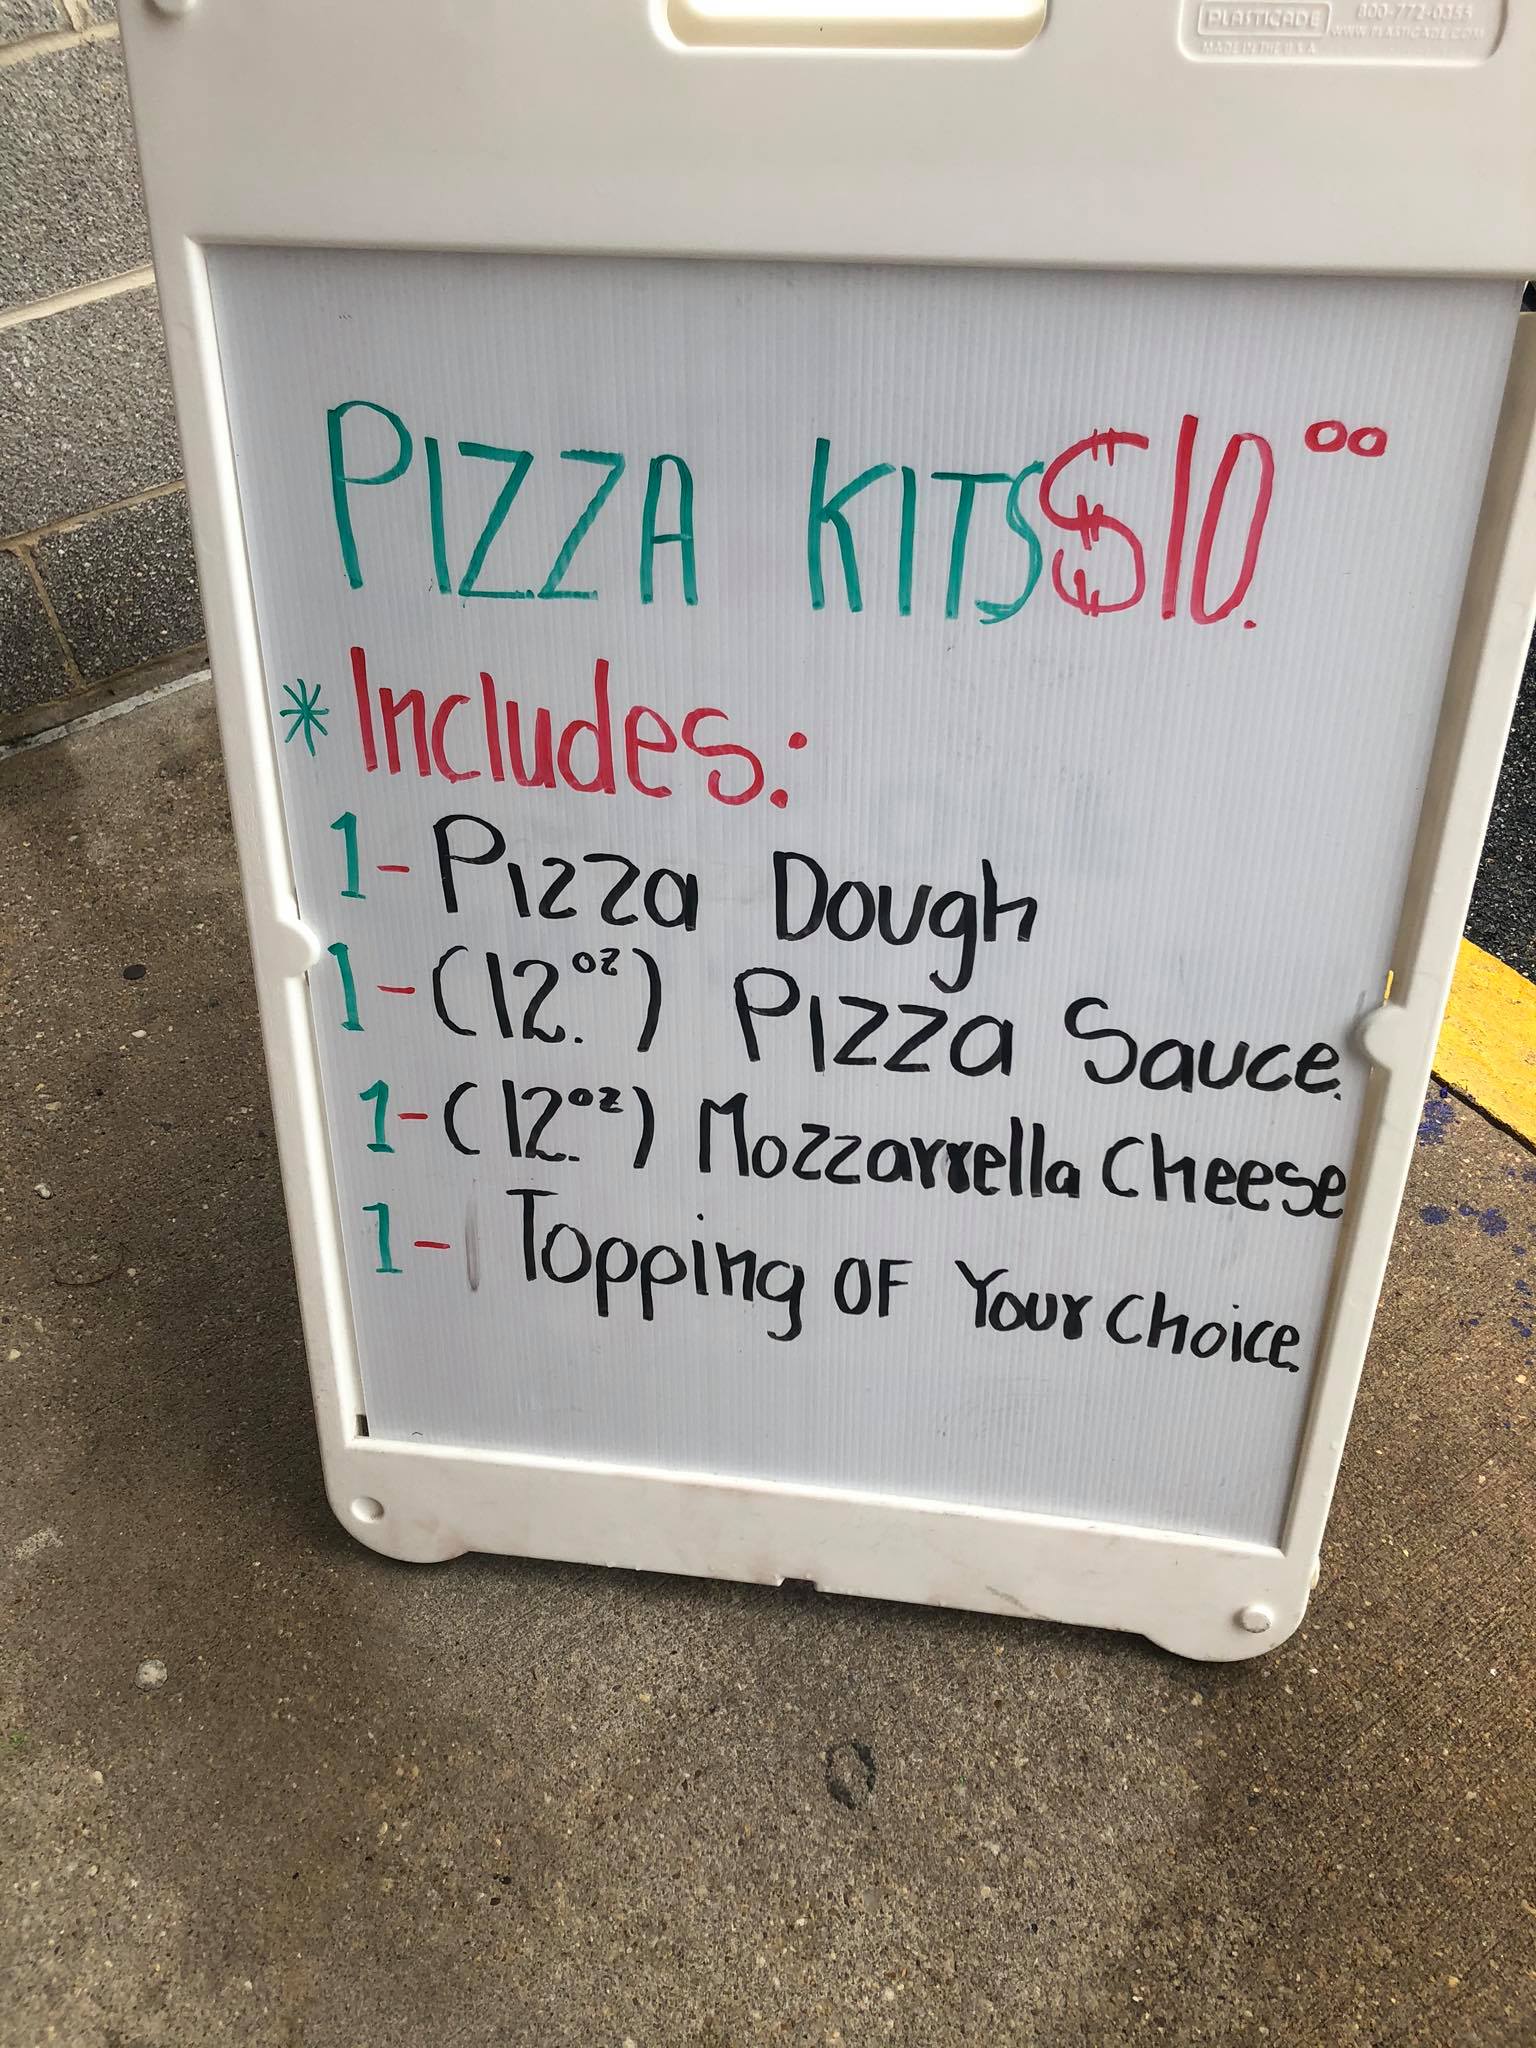 PLASTICADE 800-772-0355
MADE IN THE U.S.A. WWW.PLASTICADE.COM
PIZZA KITS $10.00
* Includes:
1- Pizza Dough
1- (12.oz) Pizza Sauce.
1- (12.oz) Mozzarrella Cheese
1- Topping OF Your Choice.